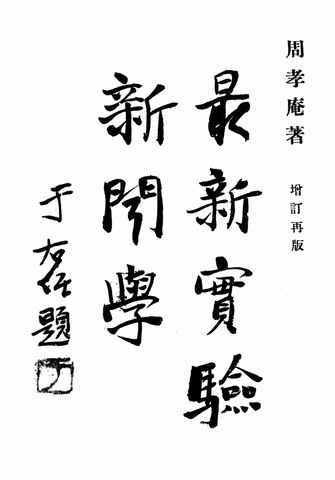 周孝庵著
增訂再版
最新實驗
新聞學
于右任題
于